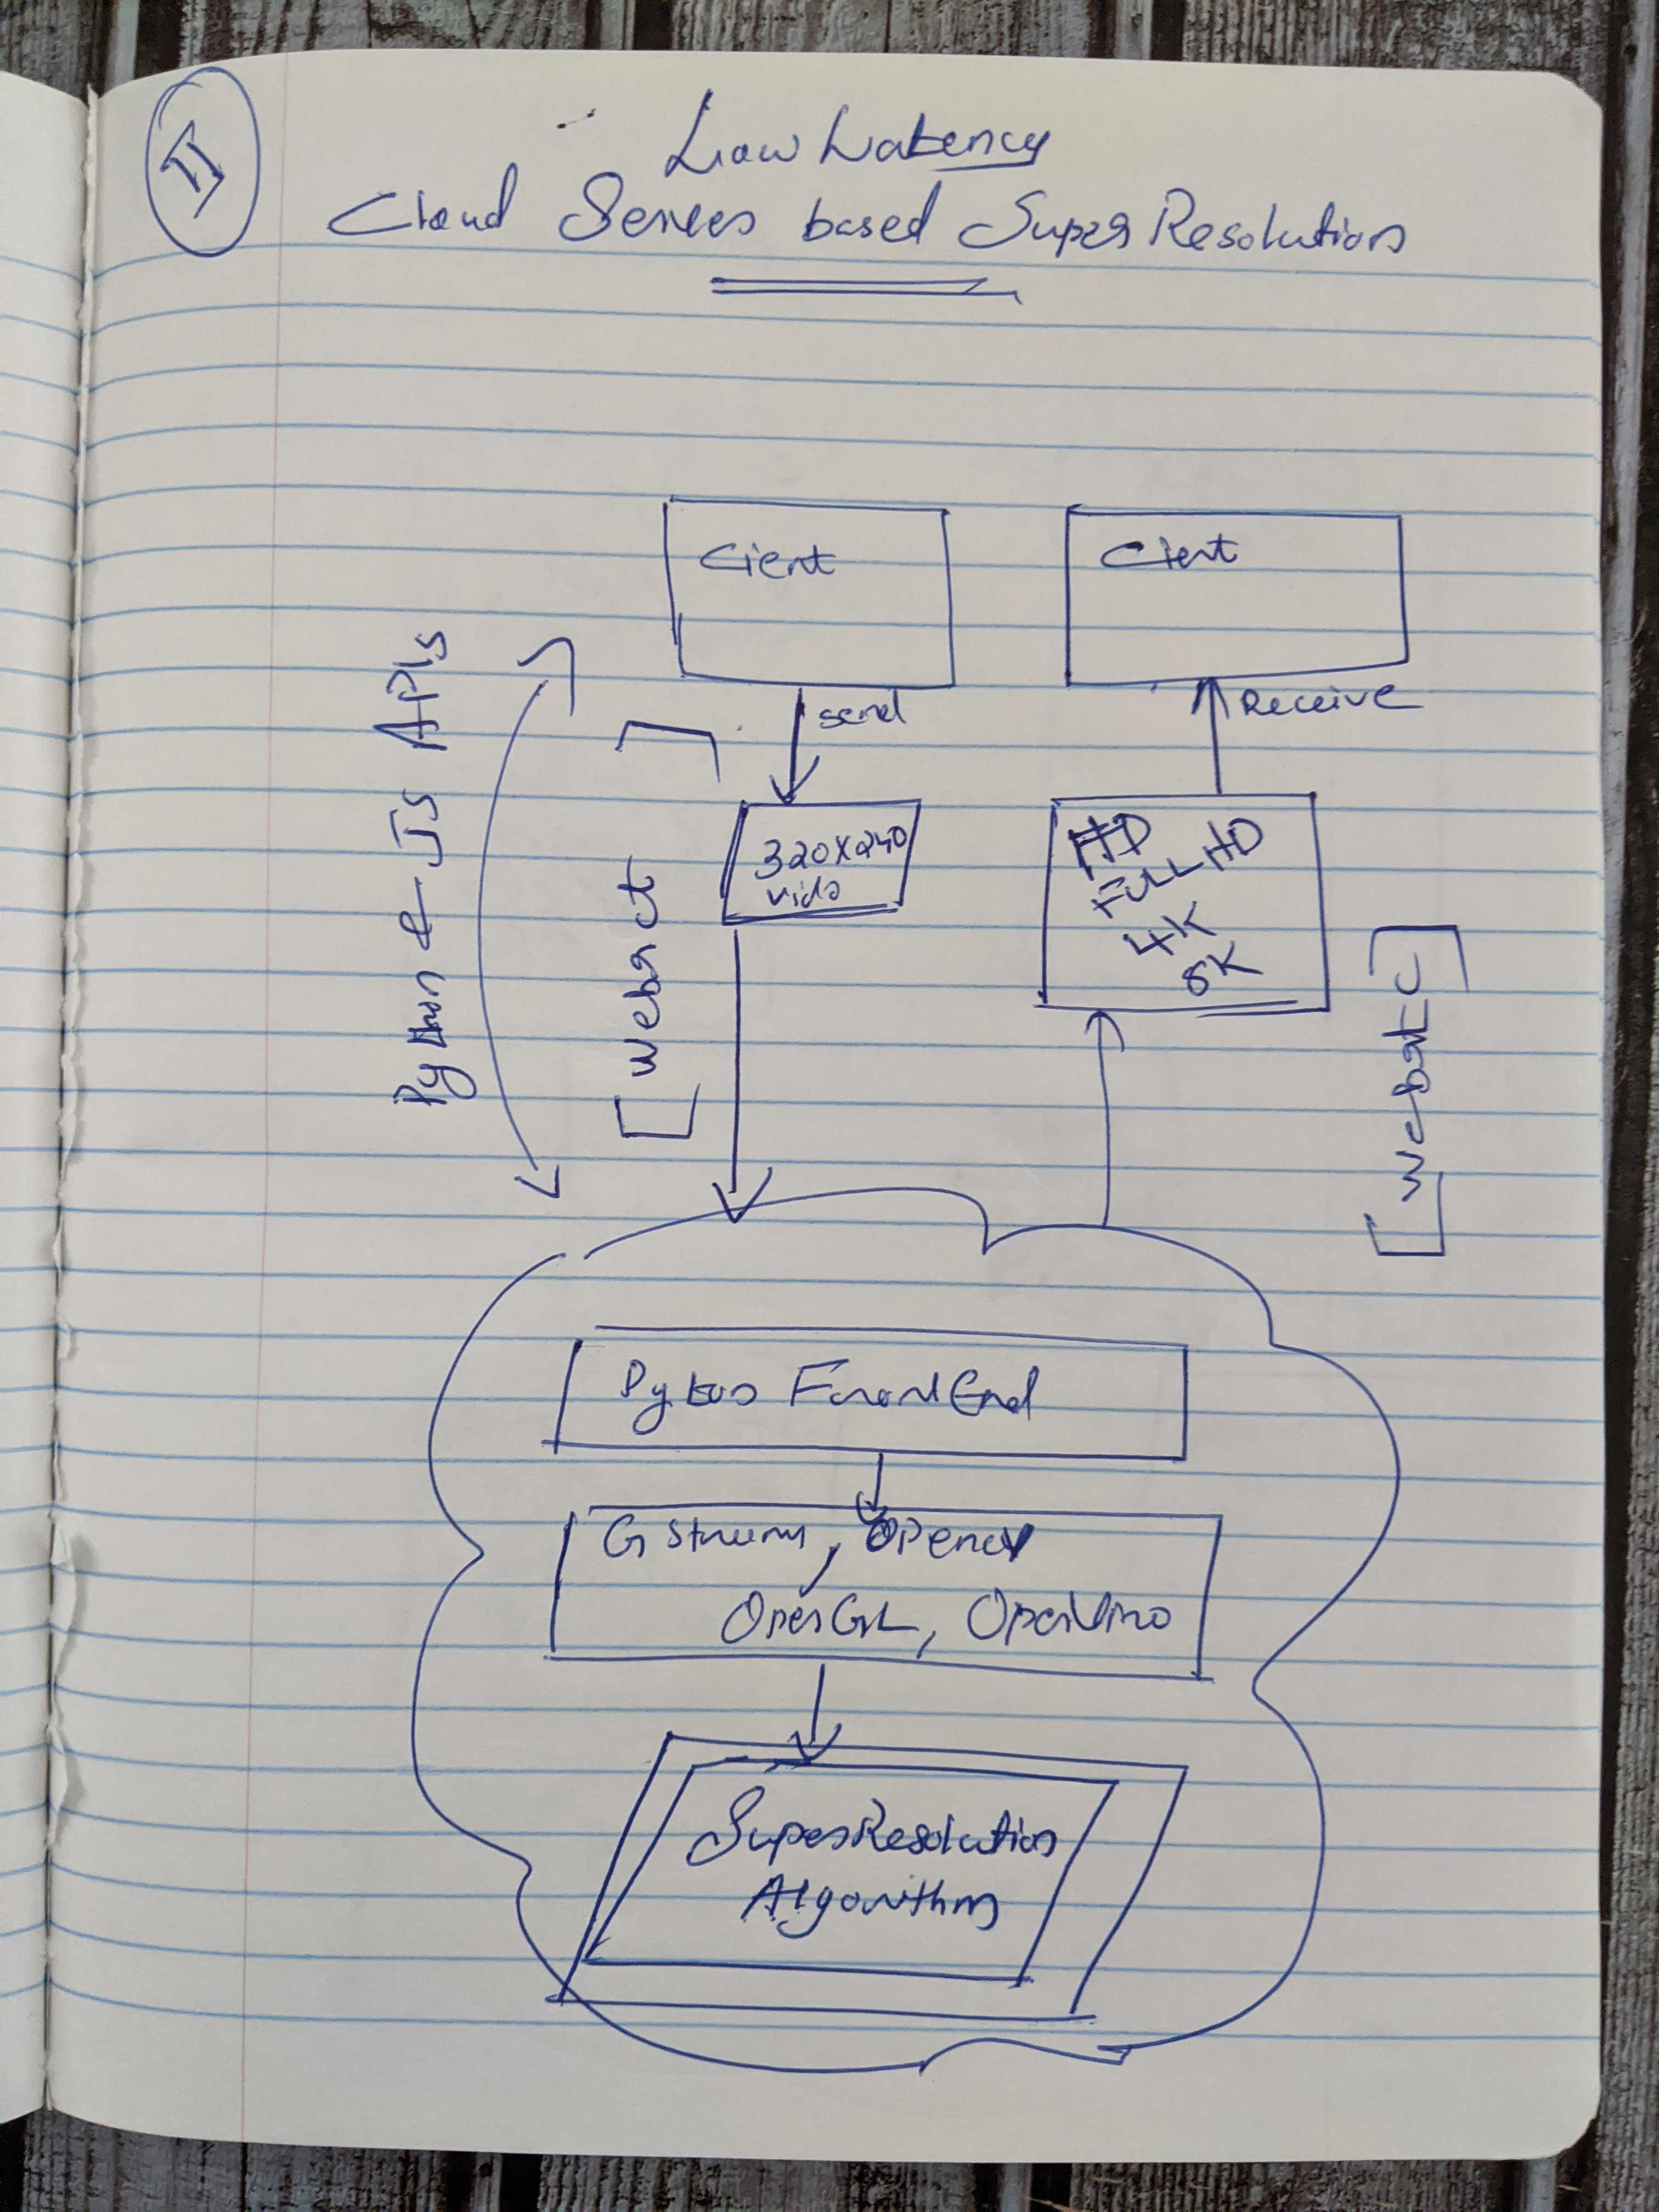 II
Low Latency
Cloud Servers based Super Resolution
Client
Client
send
Receive
Python & JS APIs
320X240
vido
HD
FULL HD
4K
8K
[Webrtc]
[Webrtc]
Python FrontEnd
GStreamer, Opencv
OpenGL, OpenVino
SuperResolution
Algorithm